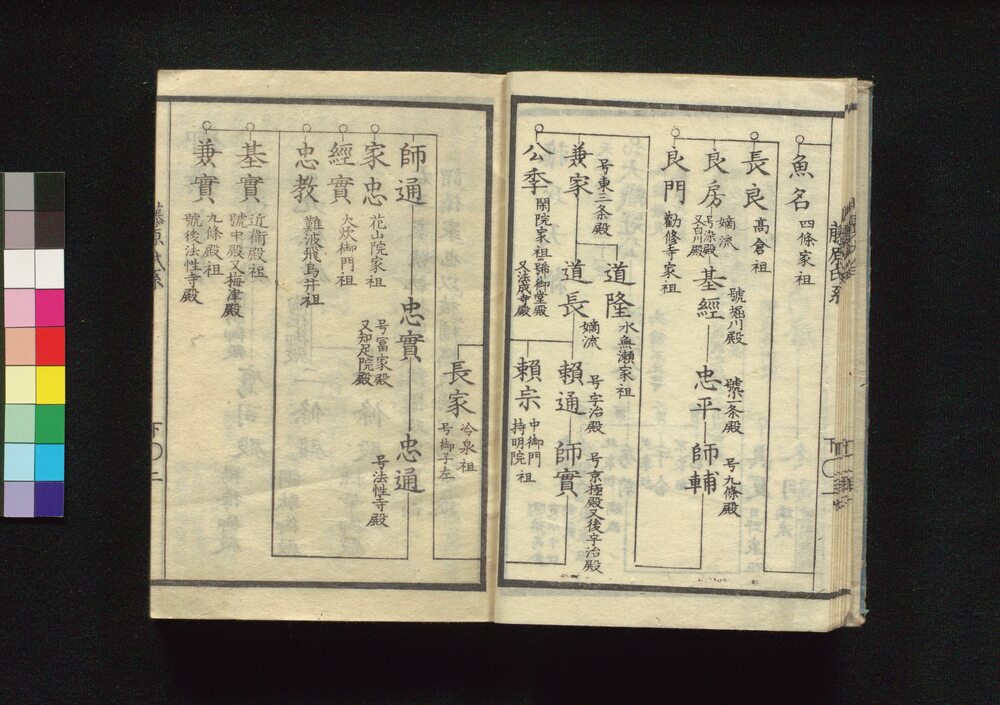 魚名
四條家祖
長良
高倉祖
良房
嫡流
号染殿
又白川殿
基經
號堀川殿
忠平
號一条殿
師輔
号九條殿
良門
勸修寺家祖
兼家
号東三条殿
道隆
水無瀬家祖
道長
嫡流
號御堂殿
又法成寺殿
頼通
号宇治殿
師實
号京極殿又後宇治殿
公季
閑院家祖
頼宗
中御門
持明院
祖
長家
冷泉祖
号御子左
師通
忠實
号冨家殿
又知足院殿
忠通
号法性寺殿
家忠
花山院家祖
經實
大炊御門祖
忠教
難波飛鳥井祖
基實
近衛殿祖
號中殿又梅津殿
兼實
九條殿祖
號後法性寺殿
藤原氏系
下〇二